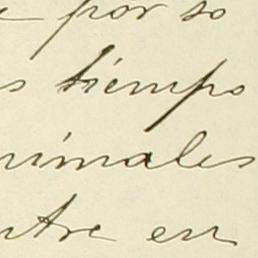 por so
s tiempo
nimales
ntre en